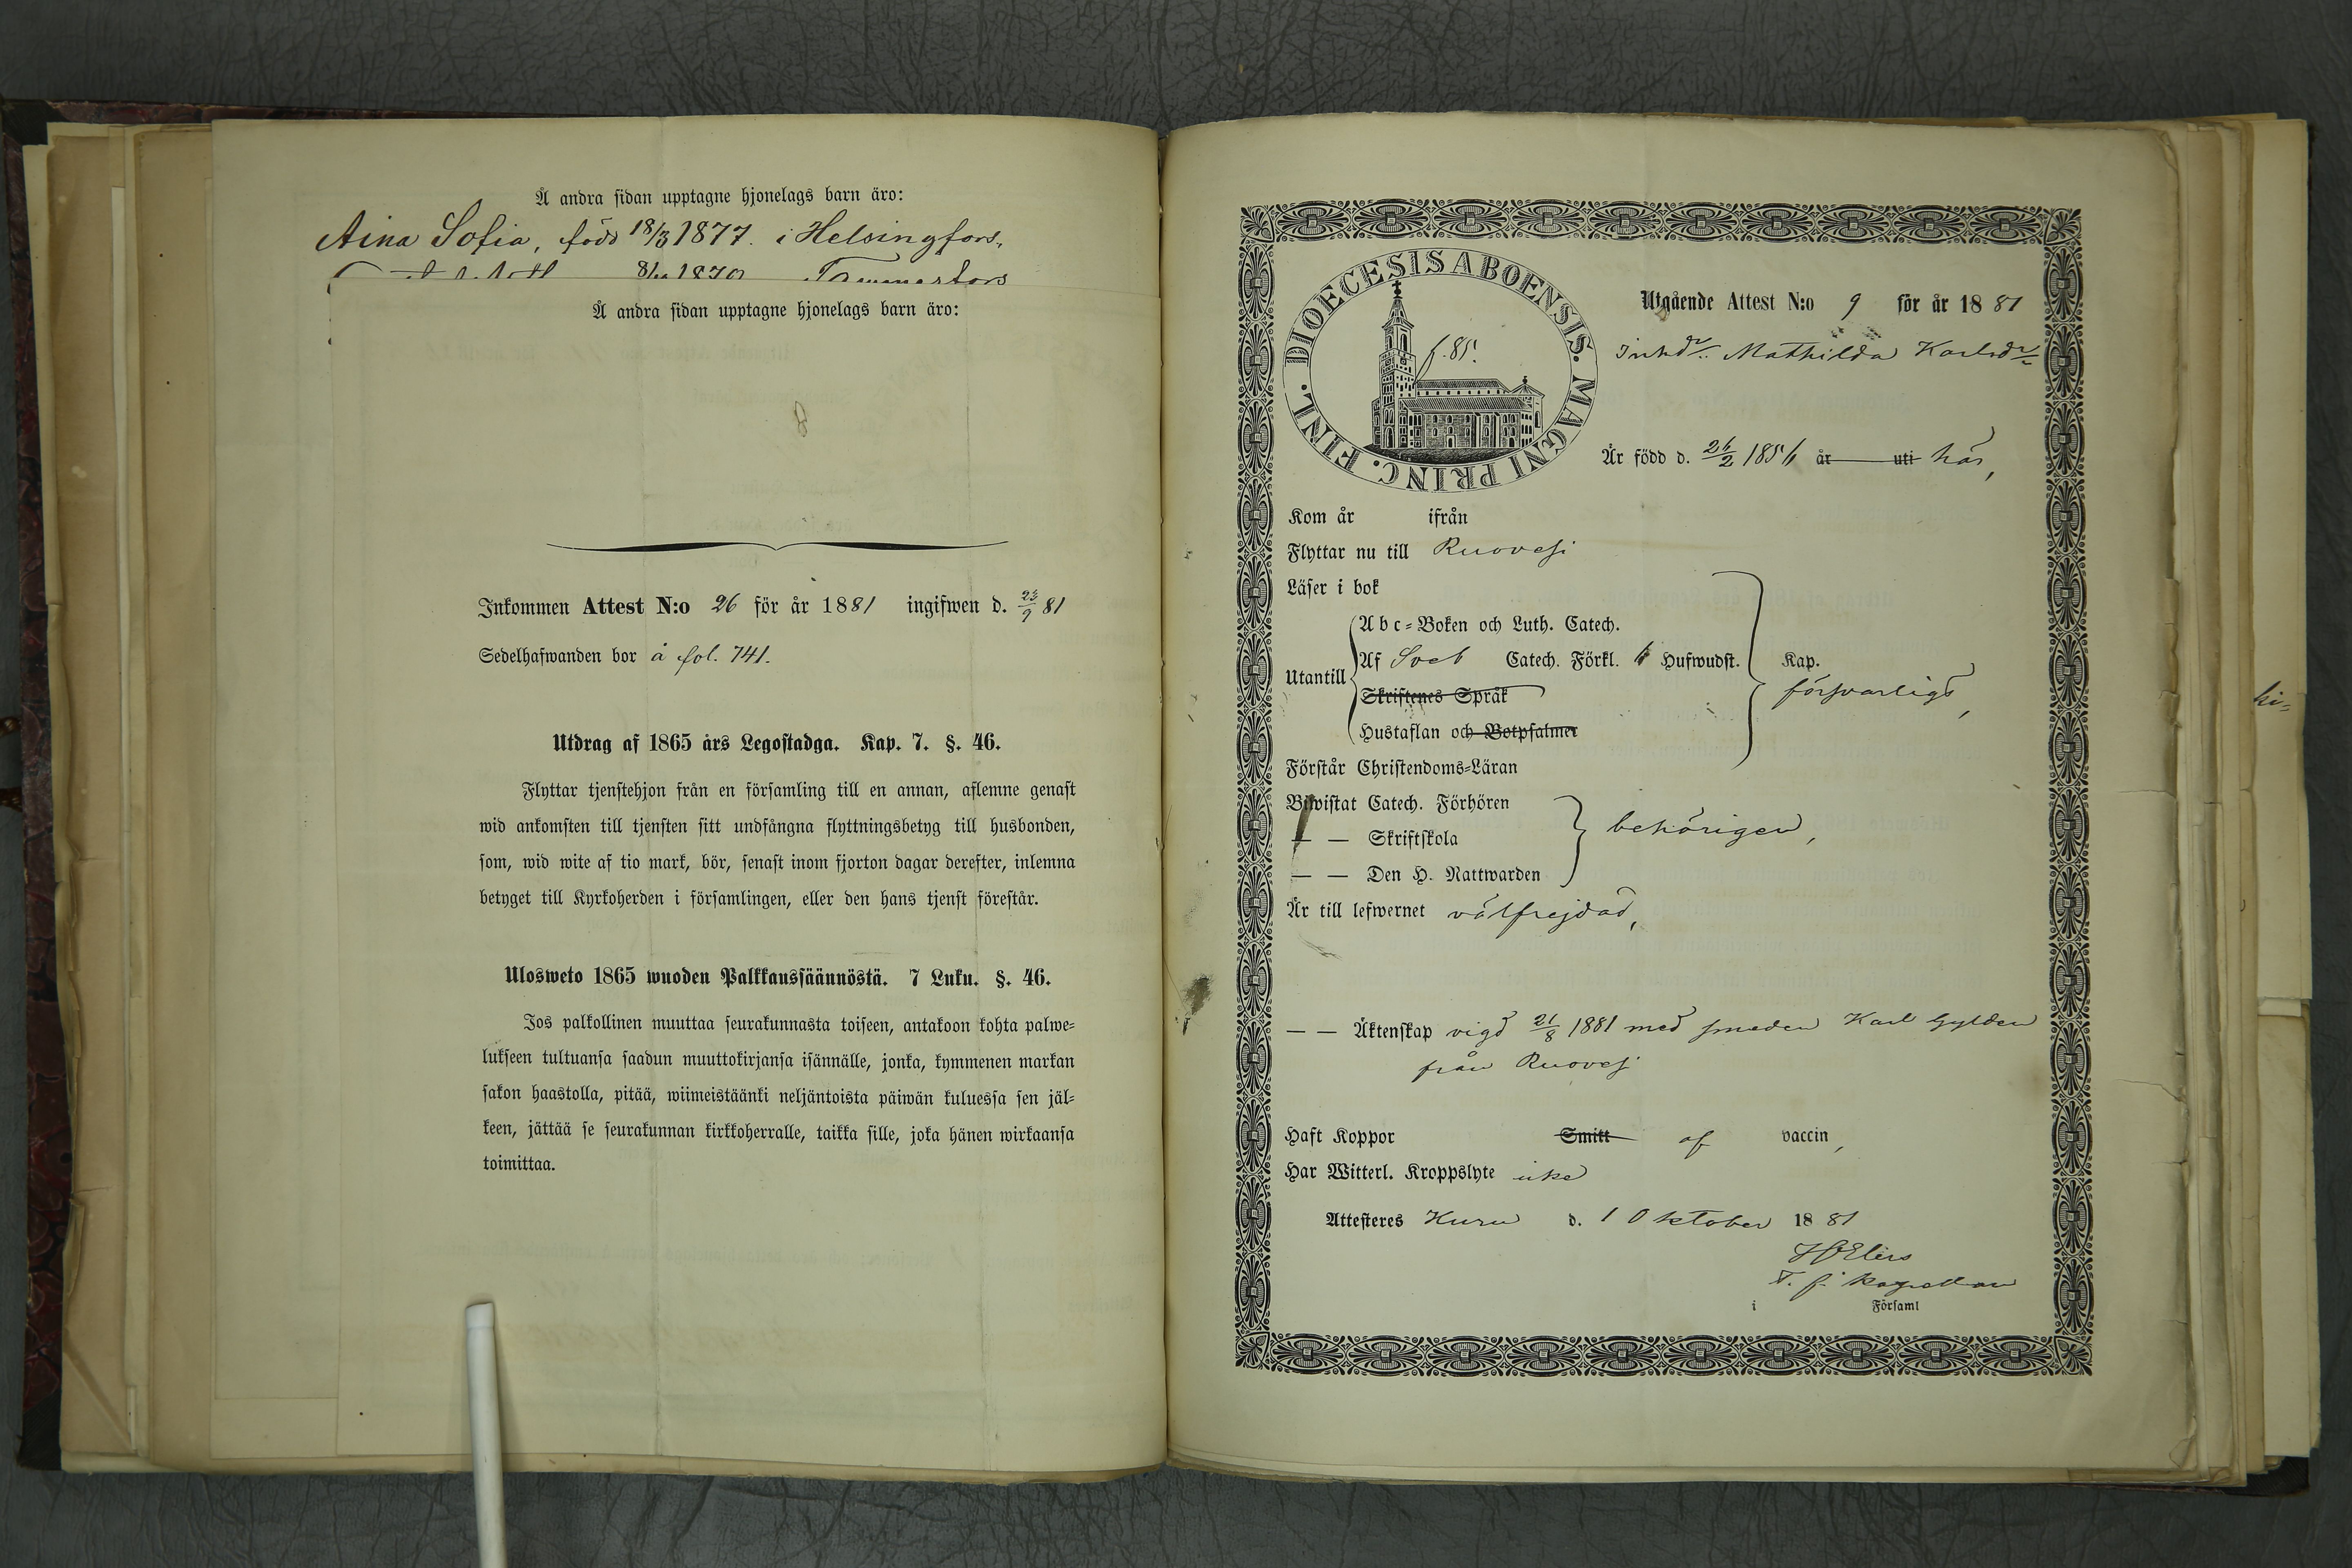 Å andra sidan upptagne hjonelags barn äro:
Aina Sofia, född 18/3 1877. i Helsingfors,
Tammerfors
Å andra sidan upptagne hjonelags barn äro:
Inkommen Attest N:o 26 för år 1881 ingifwen d. 23/9 81
Sedelhafwanden bor å fol. 741.
Utdrag af 1865 års Legostadga. Kap. 7. §. 46.
Flyttar tjenstehjon från en församling till en annan, aflemne genast
wid ankomsten till tjensten sitt undfångna flyttningsbetyg till husbonden,
som, wid wite af tio mark, bör, senast inom fjorton dagar derefter, inlemna
betyget till Kyrkoherden i församlingen, eller den hans tjenst förestår.
Ulosweto 1865 wuoden Palkkaussäännöstä. 7 Luku. §. 46.
Jos palkollinen muuttaa seurakunnasta toiseen, antakoon kohta palwe-
lukseen tultuansa saadun muuttokirjansa isännälle, jonka, kymmenen markan
sakon haastolla, pitää, wiimeistäänki neljäntoista päiwän kuluessa sen jäl-
keen, jättää se seurakunnan kirkkoherralle, taikka sille, joka hänen wirkaansa
toimittaa.
DIOECESIS ABOENSIS. MAGNI PRINC. FINL.
f. 85.
Utgående Attest N:o 9 för år 18 81
Inhdr: Mathilda Karlsdr
Är född d. 26/2 185 år uti här,
Kom år ifrån
Flyttar nu till Ruovesi
Läser i bok
Utantill
Abc-Boken och Luth. Catech.
Af Sveb Catech. Förkl. 6 Hufwudst. Kap.
Skriftenes Språk
försvarligt,
Hustaflan och Botpsalmer
Förstår Christendoms-Läran
Biwistat Catech. Förhören
— — Skriftskola
behörigen,
— — Den H. Nattwarden
Är till lefwernet välfrejdad,
— — Äktenskap vigd 21/8 1881 med smeden Karl Gylden
från Ruovesi
Haft Koppor Smitt af vaccin,
Har Witterl. Kroppslyte icke
Attesteres Kuru d. 1 Oktober 18 81
T. f. Kapellan
i Församl
hi=